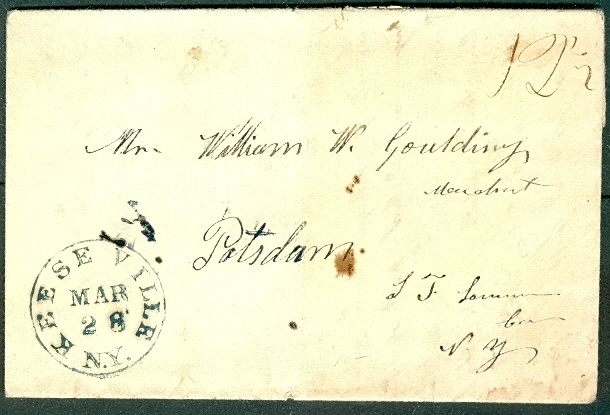 12½
Mr. William W. Goulding
Merchant
Potsdam
N Y
KEESEVILLE
MAR
28
N.Y.